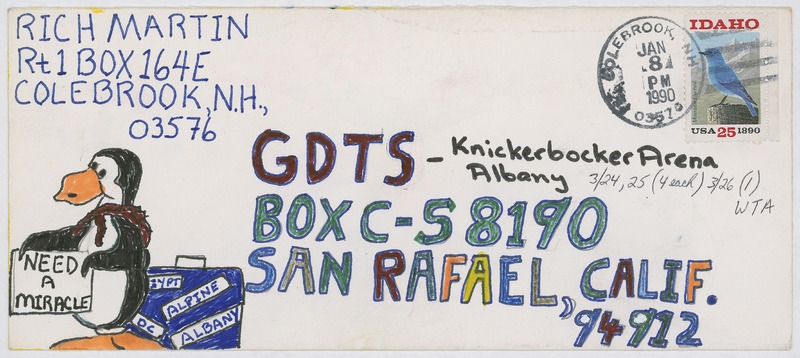 RICH MARTIN
Rt 1 BOX 164E
COLEBROOK, N.H.,
03576
COLEBROOK, N.H.
JAN
8
PM
1990
03576
IDAHO
USA 25 1890
GDTS - Knickerbocker Arena
Albany 3/24, 25 (4 each) 3/26 (1)
WTA
BOX C-S 8190
SAN RAFAEL, CALIF.
94912
NEED
A
MIRACLE
EYPT
ALPINE
DC
ALBANY